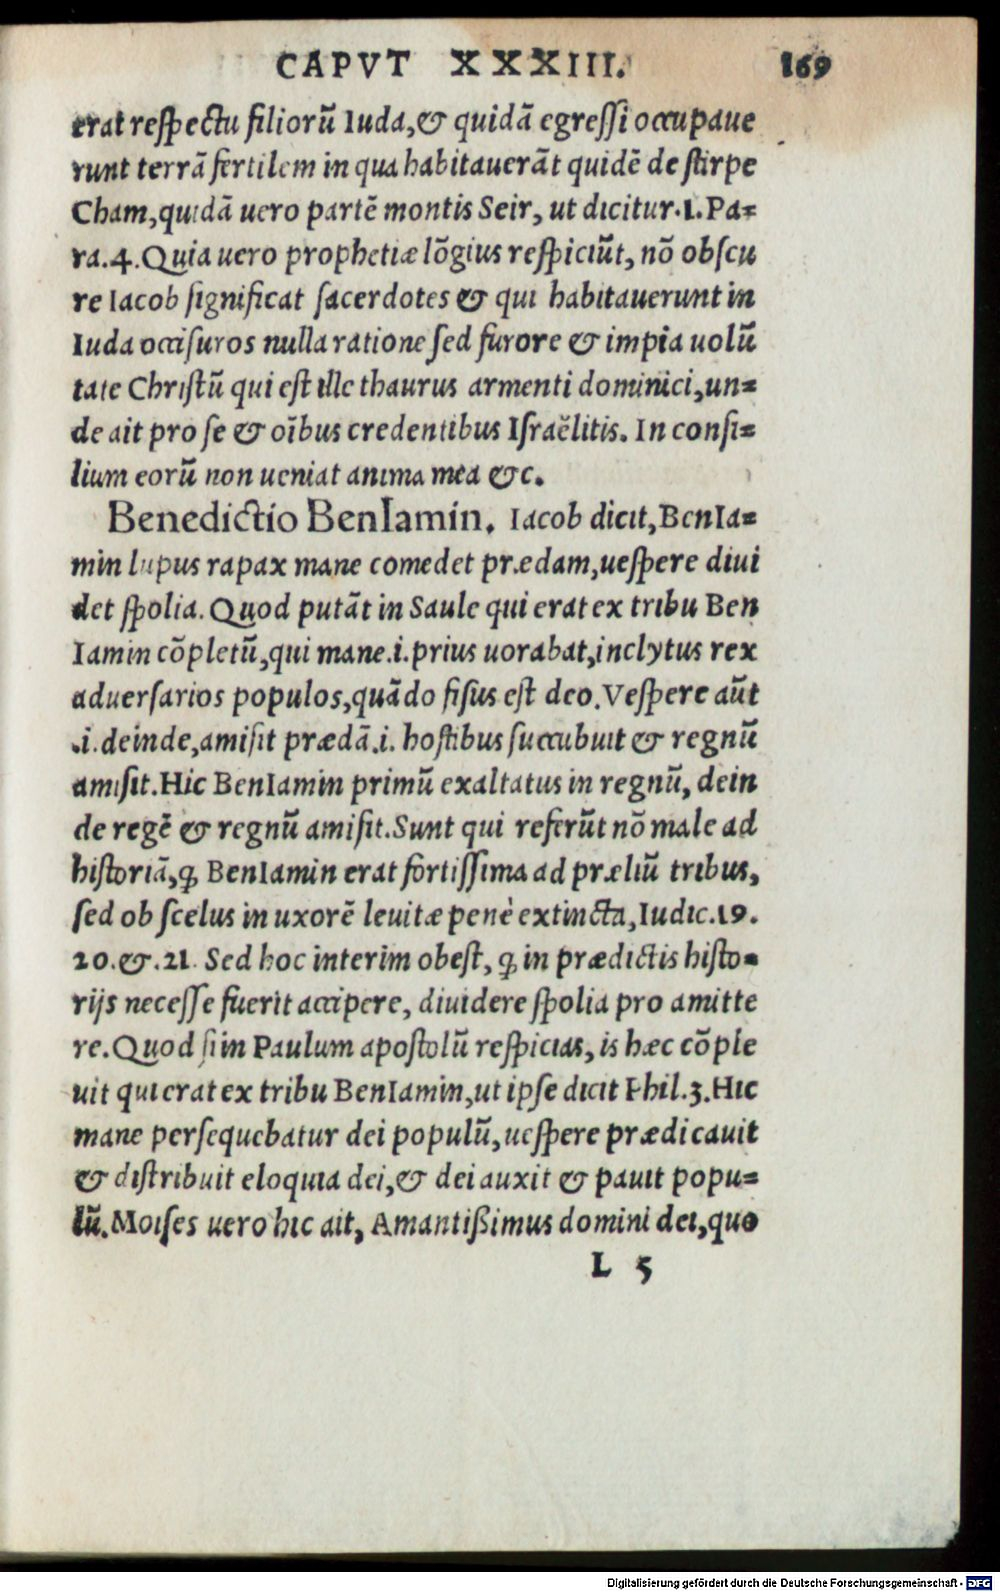 CAPVT XXXIII. 169
erat respectu filiorũ Iuda,& quidã egressi occupaue
runt terrã fertilem in qua habitauerãt quidẽ de stirpe
Cham,quidã uero partẽ montis Seir, ut dicitur.1.Pa=
ra.4.Quia uero prophetiæ lõgius respiciũt, nõ obscu
re Iacob significat sacerdotes & qui habitauerunt in
Iuda occisuros nulla ratione sed furore & impia uolũ
tate Christũ qui est ille thaurus armenti dominici,un=
de ait pro se & oĩbus credentibus Israëlitis. In consi=
lium eorũ non ueniat anima mea &c.
Benedictio BenIamin. Iacob dicit,BenIa=
min lupus rapax mane comedet prædam,uespere diui
det spolia.Quod putãt in Saule qui erat ex tribu Ben
Iamin cõpletũ,qui mane.i.prius uorabat,inclytus rex
aduersarios populos,quãdo fisus est deo.Vespere aũt
.i.deinde,amisit prædã.i. hostibus succubuit & regnũ
amisit.Hic BenIamin primũ exaltatus in regnũ, dein
de regẽ & regnũ amisit.Sunt qui referũt nõ male ad
historiã,ꝙ BenIamin erat fortissima ad præliũ tribus,
sed ob scelus in uxorẽ leuitæ penè extincta,Iudic.19.
20.&.21. Sed hoc interim obest, ꝙ in prædictis histo=
rijs necesse fuerit accipere, diuidere spolia pro amitte
re.Quod si in Paulum apostolũ respicias, is hæc cõple
uit qui erat ex tribu BenIamin,ut ipse dicit Phil.3.Hic
mane persequebatur dei populũ,uespere prædicauit
& distribuit eloquia dei,& dei auxit & pauit popu=
lũ.Moises uero hic ait, Amantißimus domini dei,quo
L 5
Digitalisierung gefördert durch die Deutsche Forschungsgemeinschaft - DFG